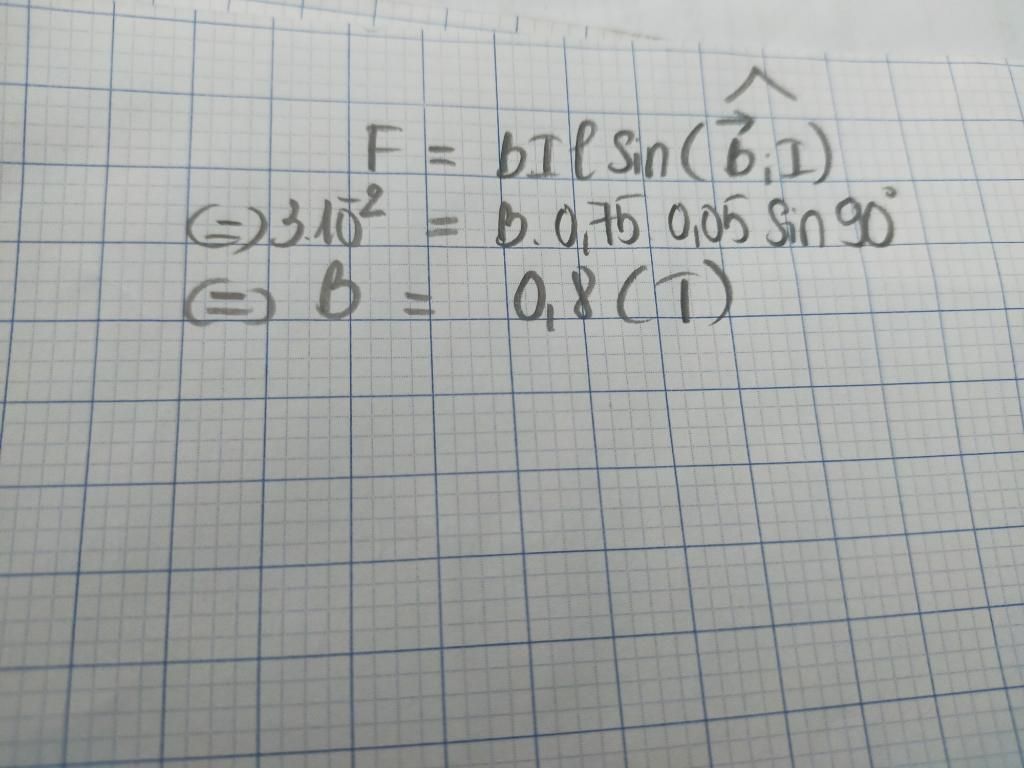 F = BIl sin(B⃗;I)
(=) 3.10⁻² = B. 0,75 0,05 sin 90°
(=) B = 0,8 (T)